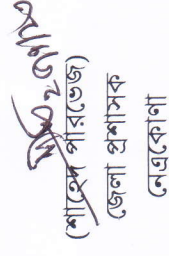 (শাহেদ পারভেজ)
জেলা প্রশাসক
নেত্রকোণা